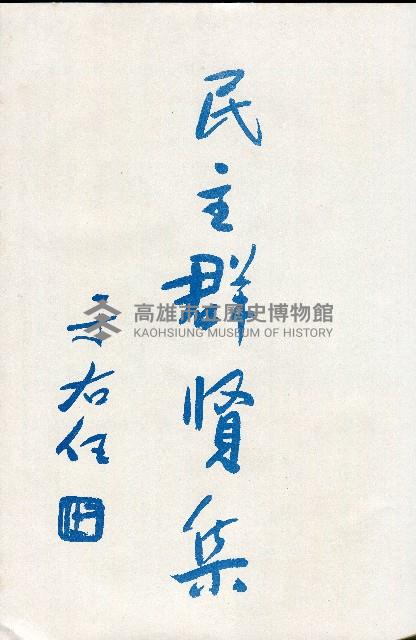 民主群賢集
于右任
高雄市立歷史博物館
KAOHSIUNG MUSEUM OF HISTORY